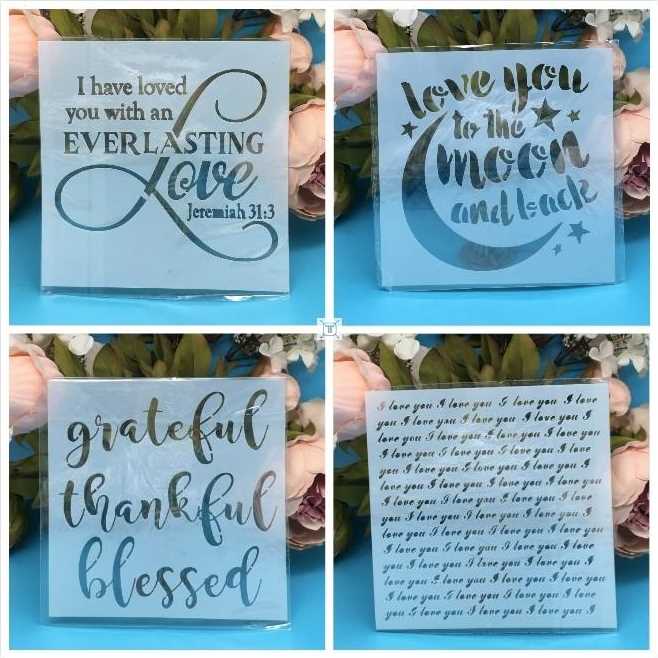 I have loved
you with an
EVERLASTING
Love
Jeremiah 31:3
love you
to the
moon
and back
grateful
thankful
blessed
I love you I love you I love you I love
you I love you I love you I love you I
love you I love you I love you I love you
I love you I love you I love you I love
you I love you I love you I love you I
love you I love you I love you I love you
I love you I love you I love you I love
you I love you I love you I love you I
love you I love you I love you I love you
I love you I love you I love you I love
you I love you I love you I love you I
love you I love you I love you I love you
I love you I love you I love you I love
you I love you I love you I love you I